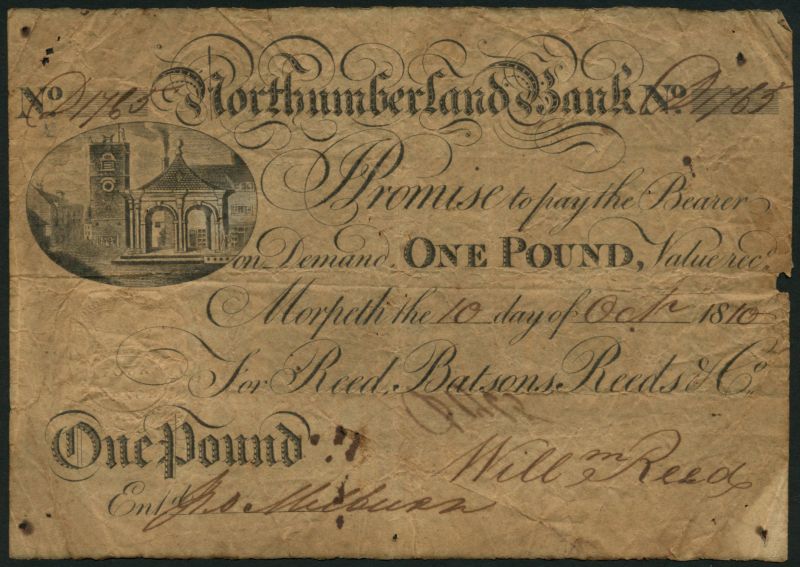 No D1765 Northumberland Bank No. D1765
I Promise to pay the Bearer
on Demand, ONE POUND, Value recd.
Morpeth the 10 day of Octr 1810
For Reed, Batsons, Reeds & Co.
One Pound
Willm Reed
Entd. Jno Milburn